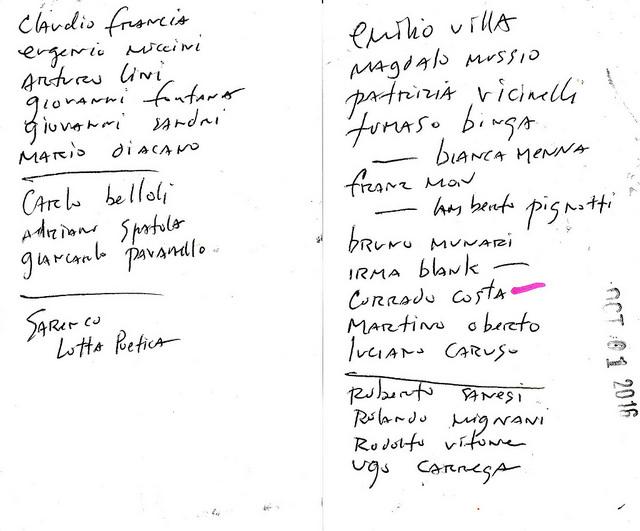 Claudio Francia
eugenio miccini
Arturo lini
giovanni fontana
giovanni sandri
Mario diacano
Carlo belloli
adriano spatola
giancarlo pavanello
Sarenco
Lotta Poetica
emilio villa
magdalo mussio
patrizia vicinelli
tomaso binga
— bianca menna
franz mon
— lamberto pignotti
bruno munari
irma blank —
Corrado Costa
Martino oberto
luciano caruso
Roberto sanesi
Rolando mignani
Rodolfo vitone
ugo carrega
OCT 01 2016